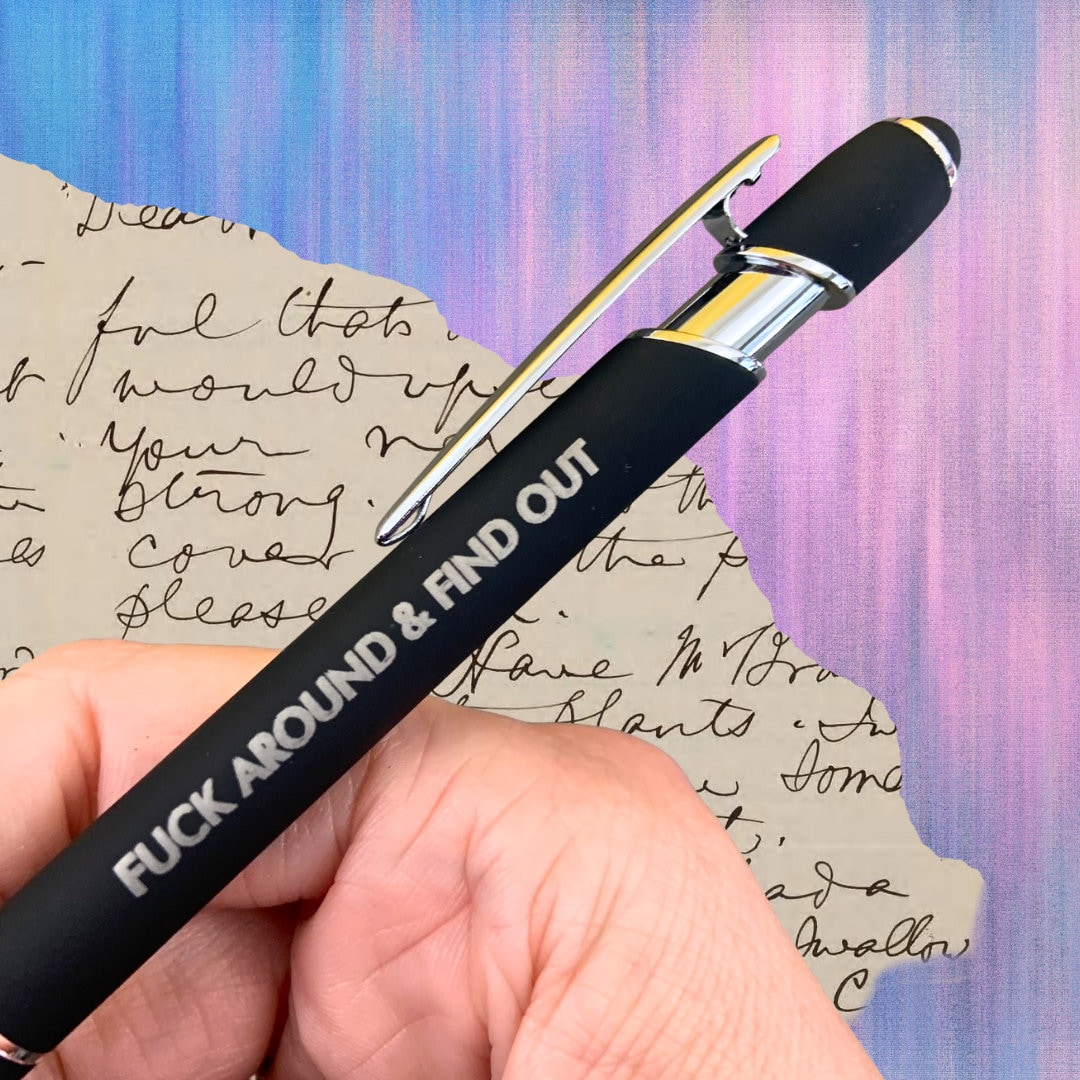 FUCK AROUND & FIND OUT
ful thats
would
your
strong.
cover the
please
Have Mr
plants
Some
Swallow
C